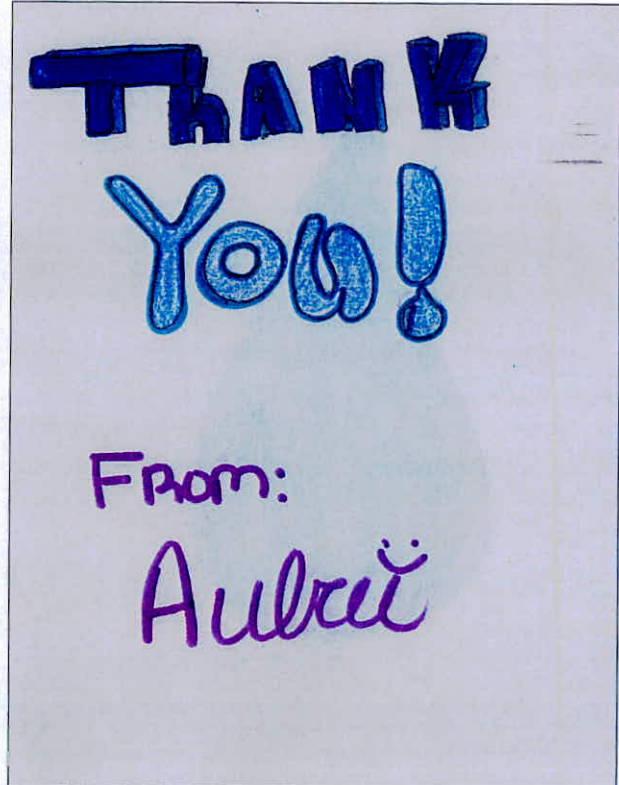 ThANK
You!
From:
Aubrii